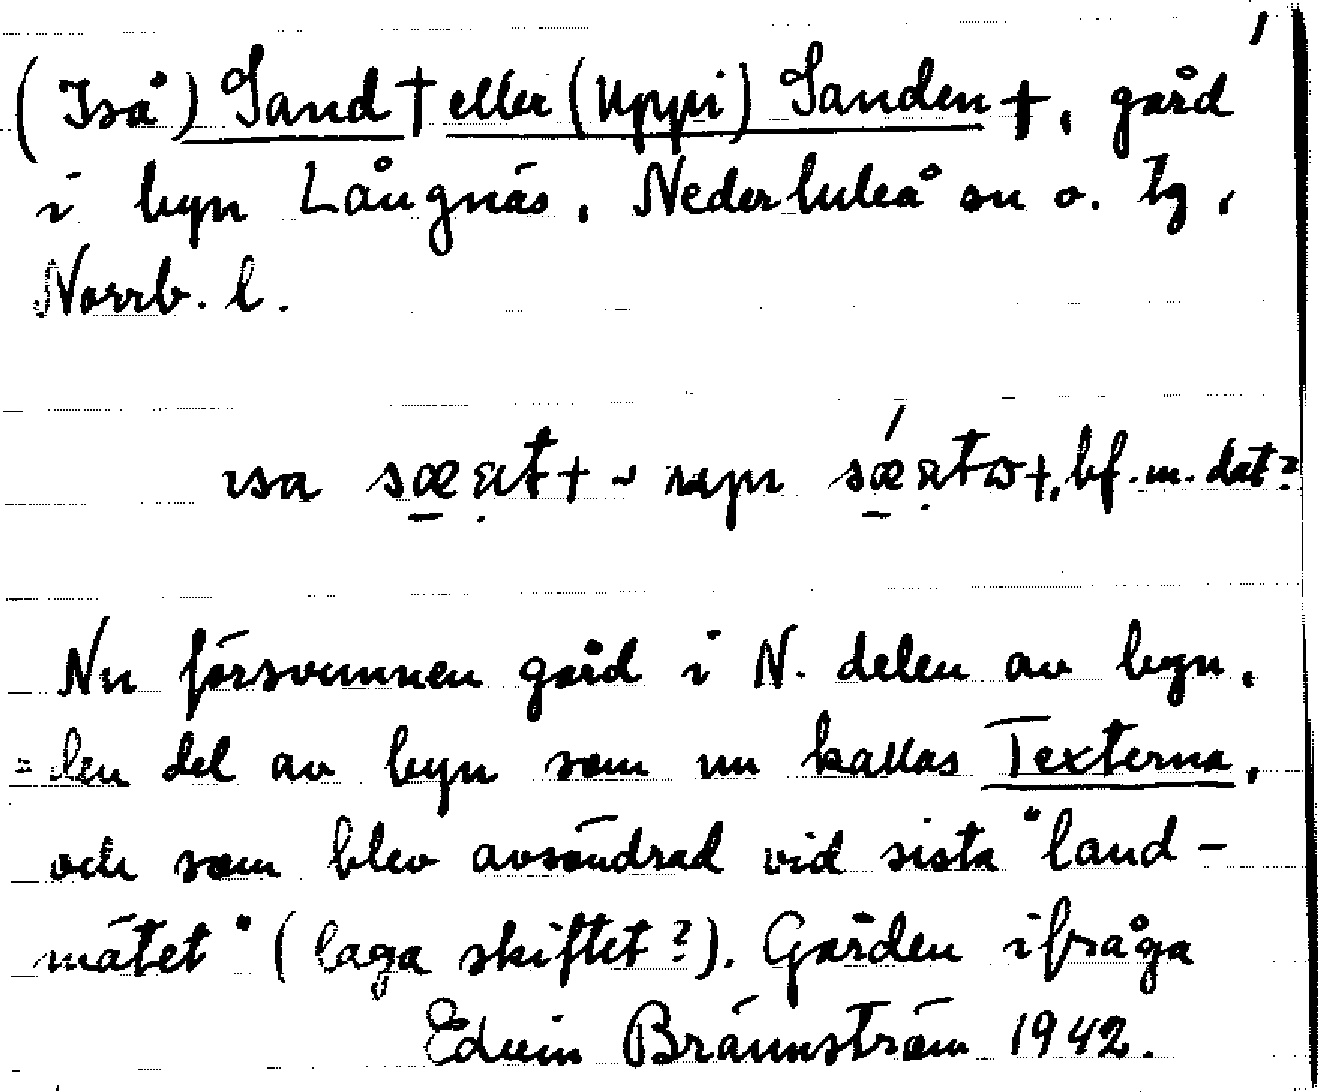 (Iså) Sand † eller (Uppi) Sanden †, gård
i byn Långnäs, Nederluleå sn o. tg,
Norrb. l.
ɩsa ~ bf. m. dat?
Nu försvunnen gård i N. delen av byn,
= den del av byn som nu kallas Texterna,
och som blev avsöndrad vid sista "land-
mätet" (laga skiftet?). Gården ifråga
Edvin Brännström 1942.